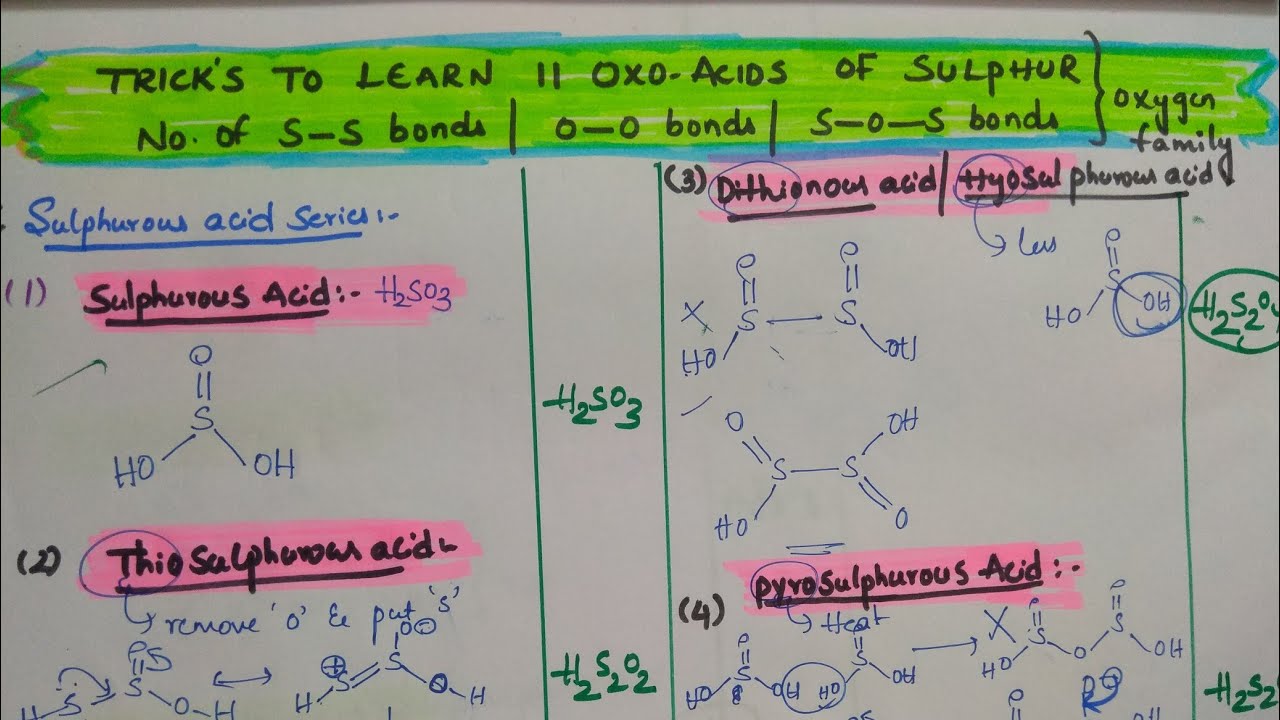 TRICK'S TO LEARN 11 OXO-ACIDS OF SULPHUR
No. of S-S bonds | O-O bonds | S-O-S bonds
} oxygen
family
Sulphurous acid series:-
(1) Sulphurous Acid:- H₂SO₃
O
S
HO OH
H₂SO₃
(2) Thiosulphurous acid:-
remove 'O' & put 'S'
O⊖
⊕
S
H S
O-H
S
H S
O-H
H₂S₂O₂
(3) Dithionous acid / Hyosulphurous acid
less
O O
X S S
HO OH
O
S
HO OH
H₂S₂O₄
O OH
S S
HO O
(4) pyrosulphurous Acid:-
Heat
O O
S S
HO OH HO OH
X O O
S S
HO O OH
H₂S₂